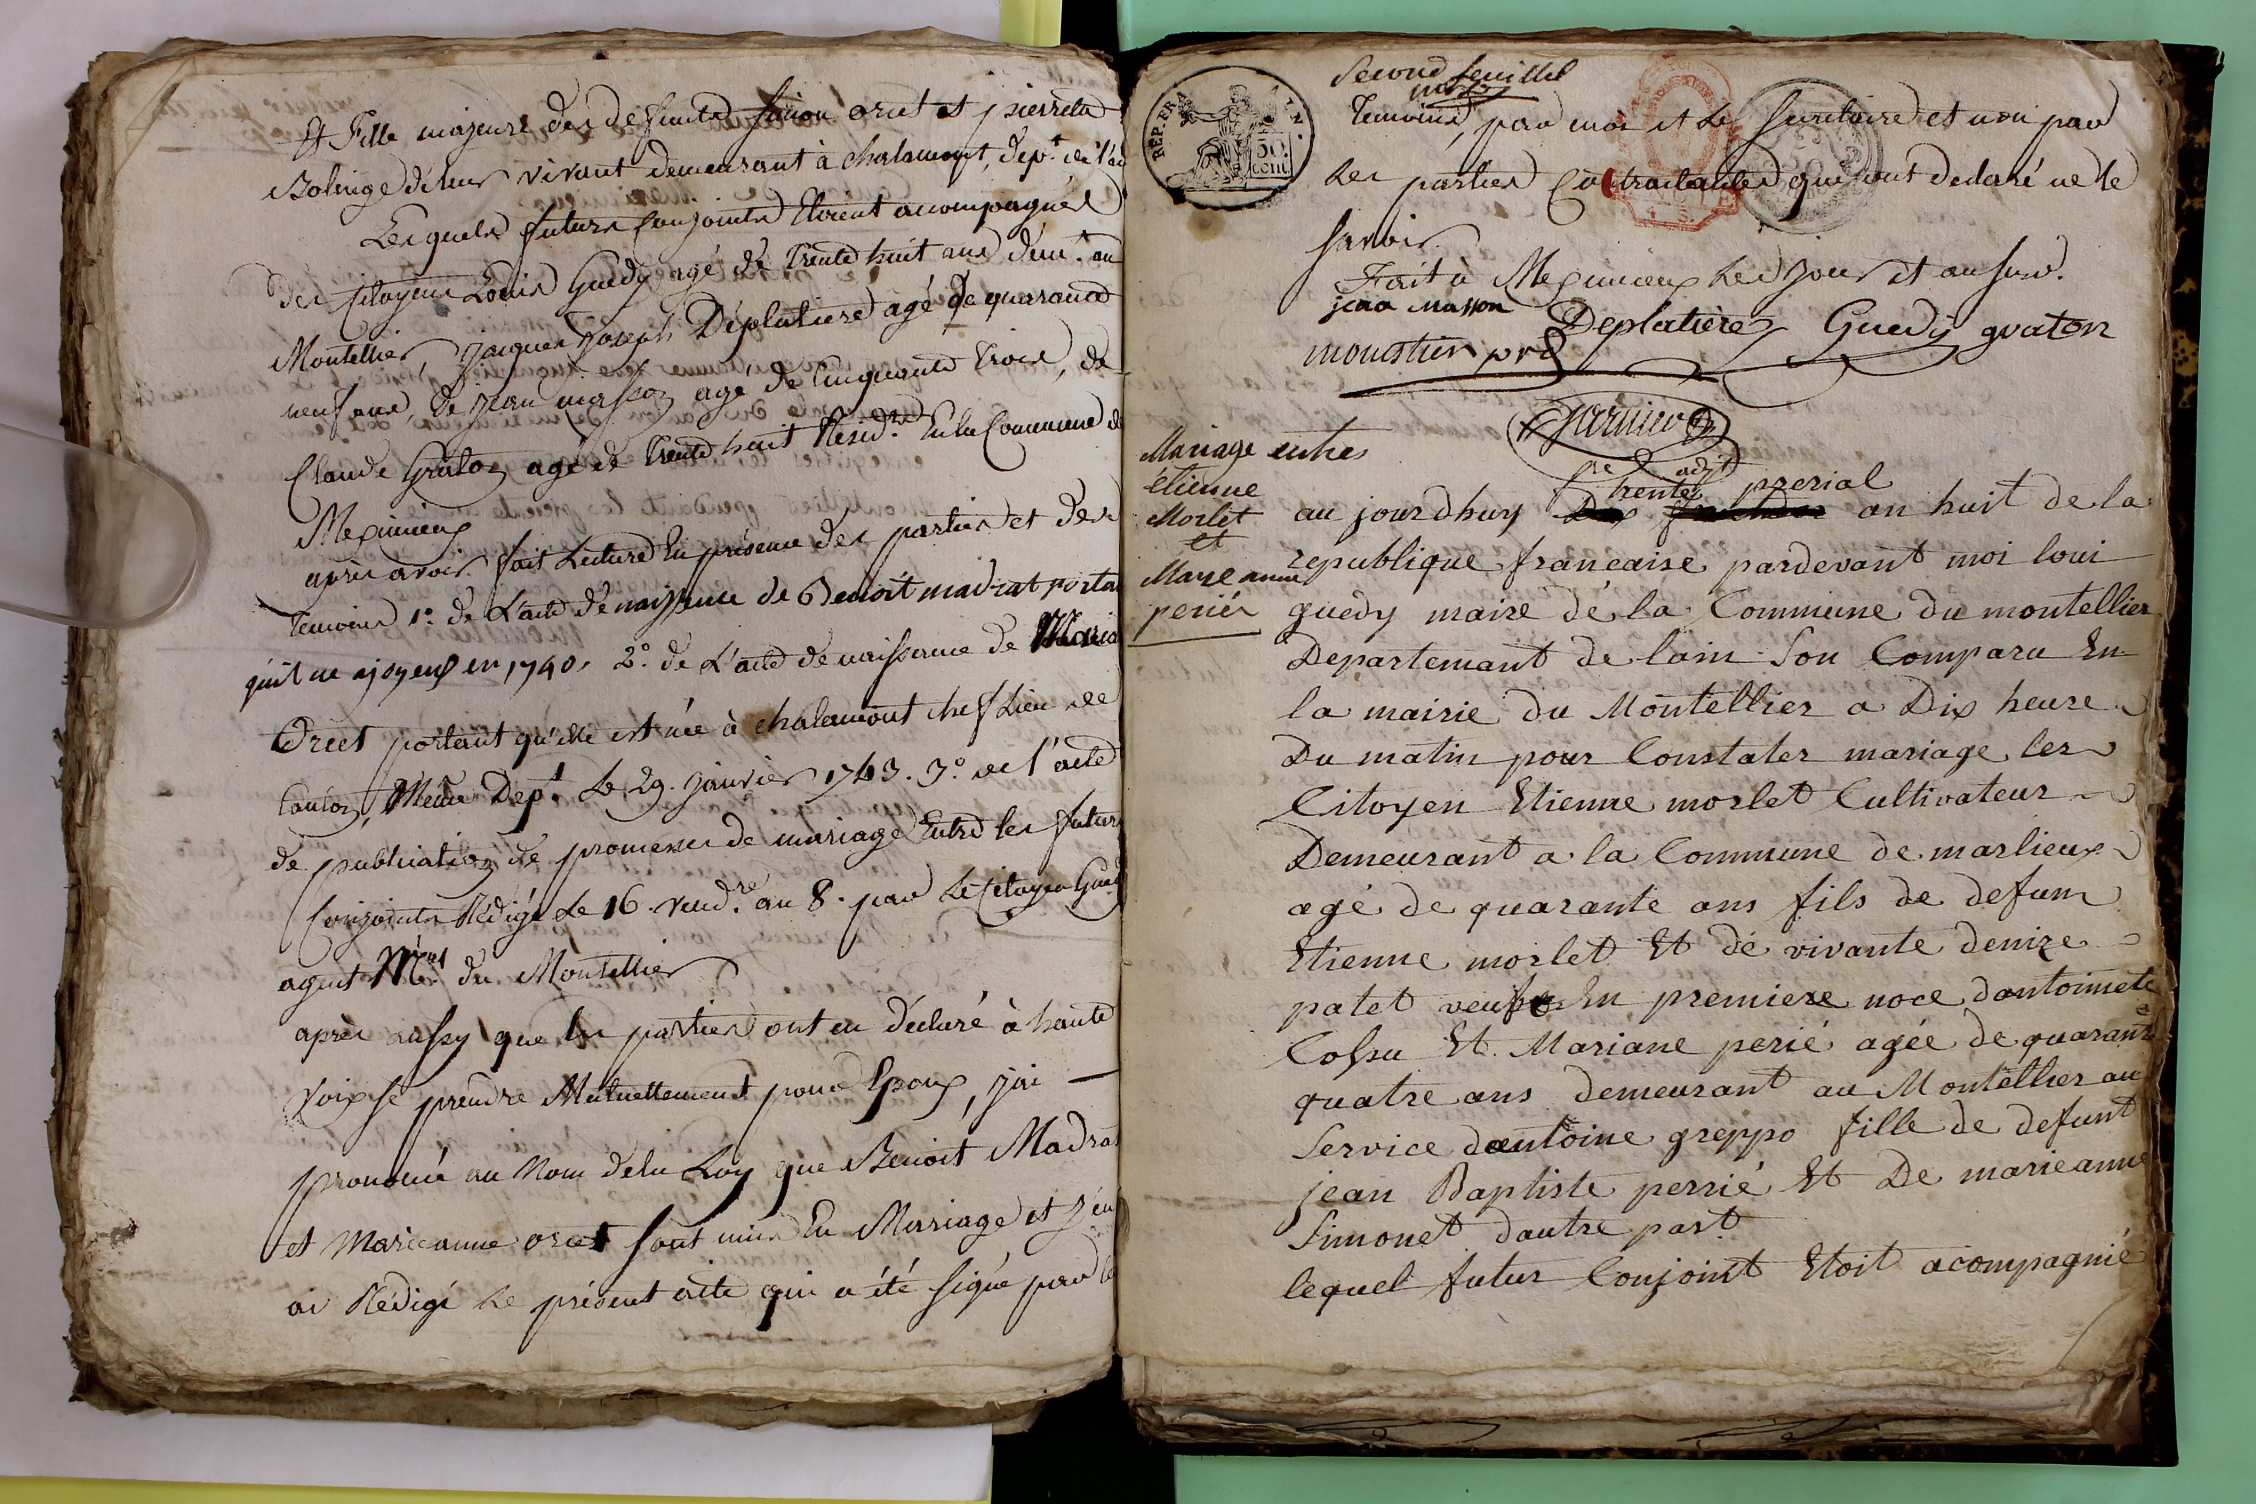 Et Fille majeure des defunts Simon oret et pierrette
Bolinge de leur vivant demeurant à chalamont, dep.t de l'ain
Lesquels futurs Conjoints Etoient acompagnés
des Citoyens Louis Guedy agé de Trente huit ans deme.t au
Montellier, Jacques Joseph Déplatiere agé de quarante
neuf ans, de jean masson agé de Cinquante Trois, de
Claude Graton agé de Trente huit Resid.ts En la Commune de
Meximieux
après avoir fait Lecture En présence des parties et des
Temoins 1.o de L'acte de naissance de Benoit madrat portant
qu'il ne a joyeux en 1740. 2.o de L'acte de naissance de Marie
Oreet portant qu'elle est née à chalamont chef Lieu de
Canton, Même Dep.t Le 29. janvier 1743. 3.o de l'acte
de publication de promesse de mariage Entre les futurs
Conjoints Rédigé le 16. vend.re an 8. par Le Citoyen Guedy
agent M.al du Montellier
après aussy que les parties ont eu déclaré à haute
voix se prendre Mutuellement pour Epoux, j'ai
prononcé au Nom de la Loy que Benoit Madrat
et Marieanne oret sont unis En Mariage et j'en
ai Rédigé le présent acte qui a été signé par les
Second feuillet
Temoins, par moi et Le Secrétaire et non par
Les parties Contractantes qui ont declaré ne le
savoir
Fait à Meximieux Les jour et an susd.
jean masson Deplatière Guedy graton
moustier prd
garnier
Mariage entres
étienne
Morlet
et
Marie anne
periér
trente prerial
au jourdhuy an huit de la
republique francaise pardevant moi loui
guedy maire dé la Commune du montellier
Departemant de lain Son Comparu En
la mairie du Montellier a Dix heure
Du matin pour Constater mariage les
Citoyen Etienne morlet Cultivateur
Demeurant a la Commune de marlieux
agé de quarante ans fils de defun
Etienne morlet Et de vivante denize
patet veufe En premiere noce dantoinete
Cossu Et Mariane perié agée de quarante
quatre ans demeurant au Montellier au
Service dantoine greppo fille de defunt
jean Baptiste perrié Et De marieanne
Simonet dautre part
lequel futur Conjoint Etoit acompagnié
REP. FRA
50
cent